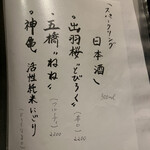 "スパークリング
日本酒"
"出羽桜"とびろく"
2200
"五橋"ねね"
2200
"神亀 活性純米にごり